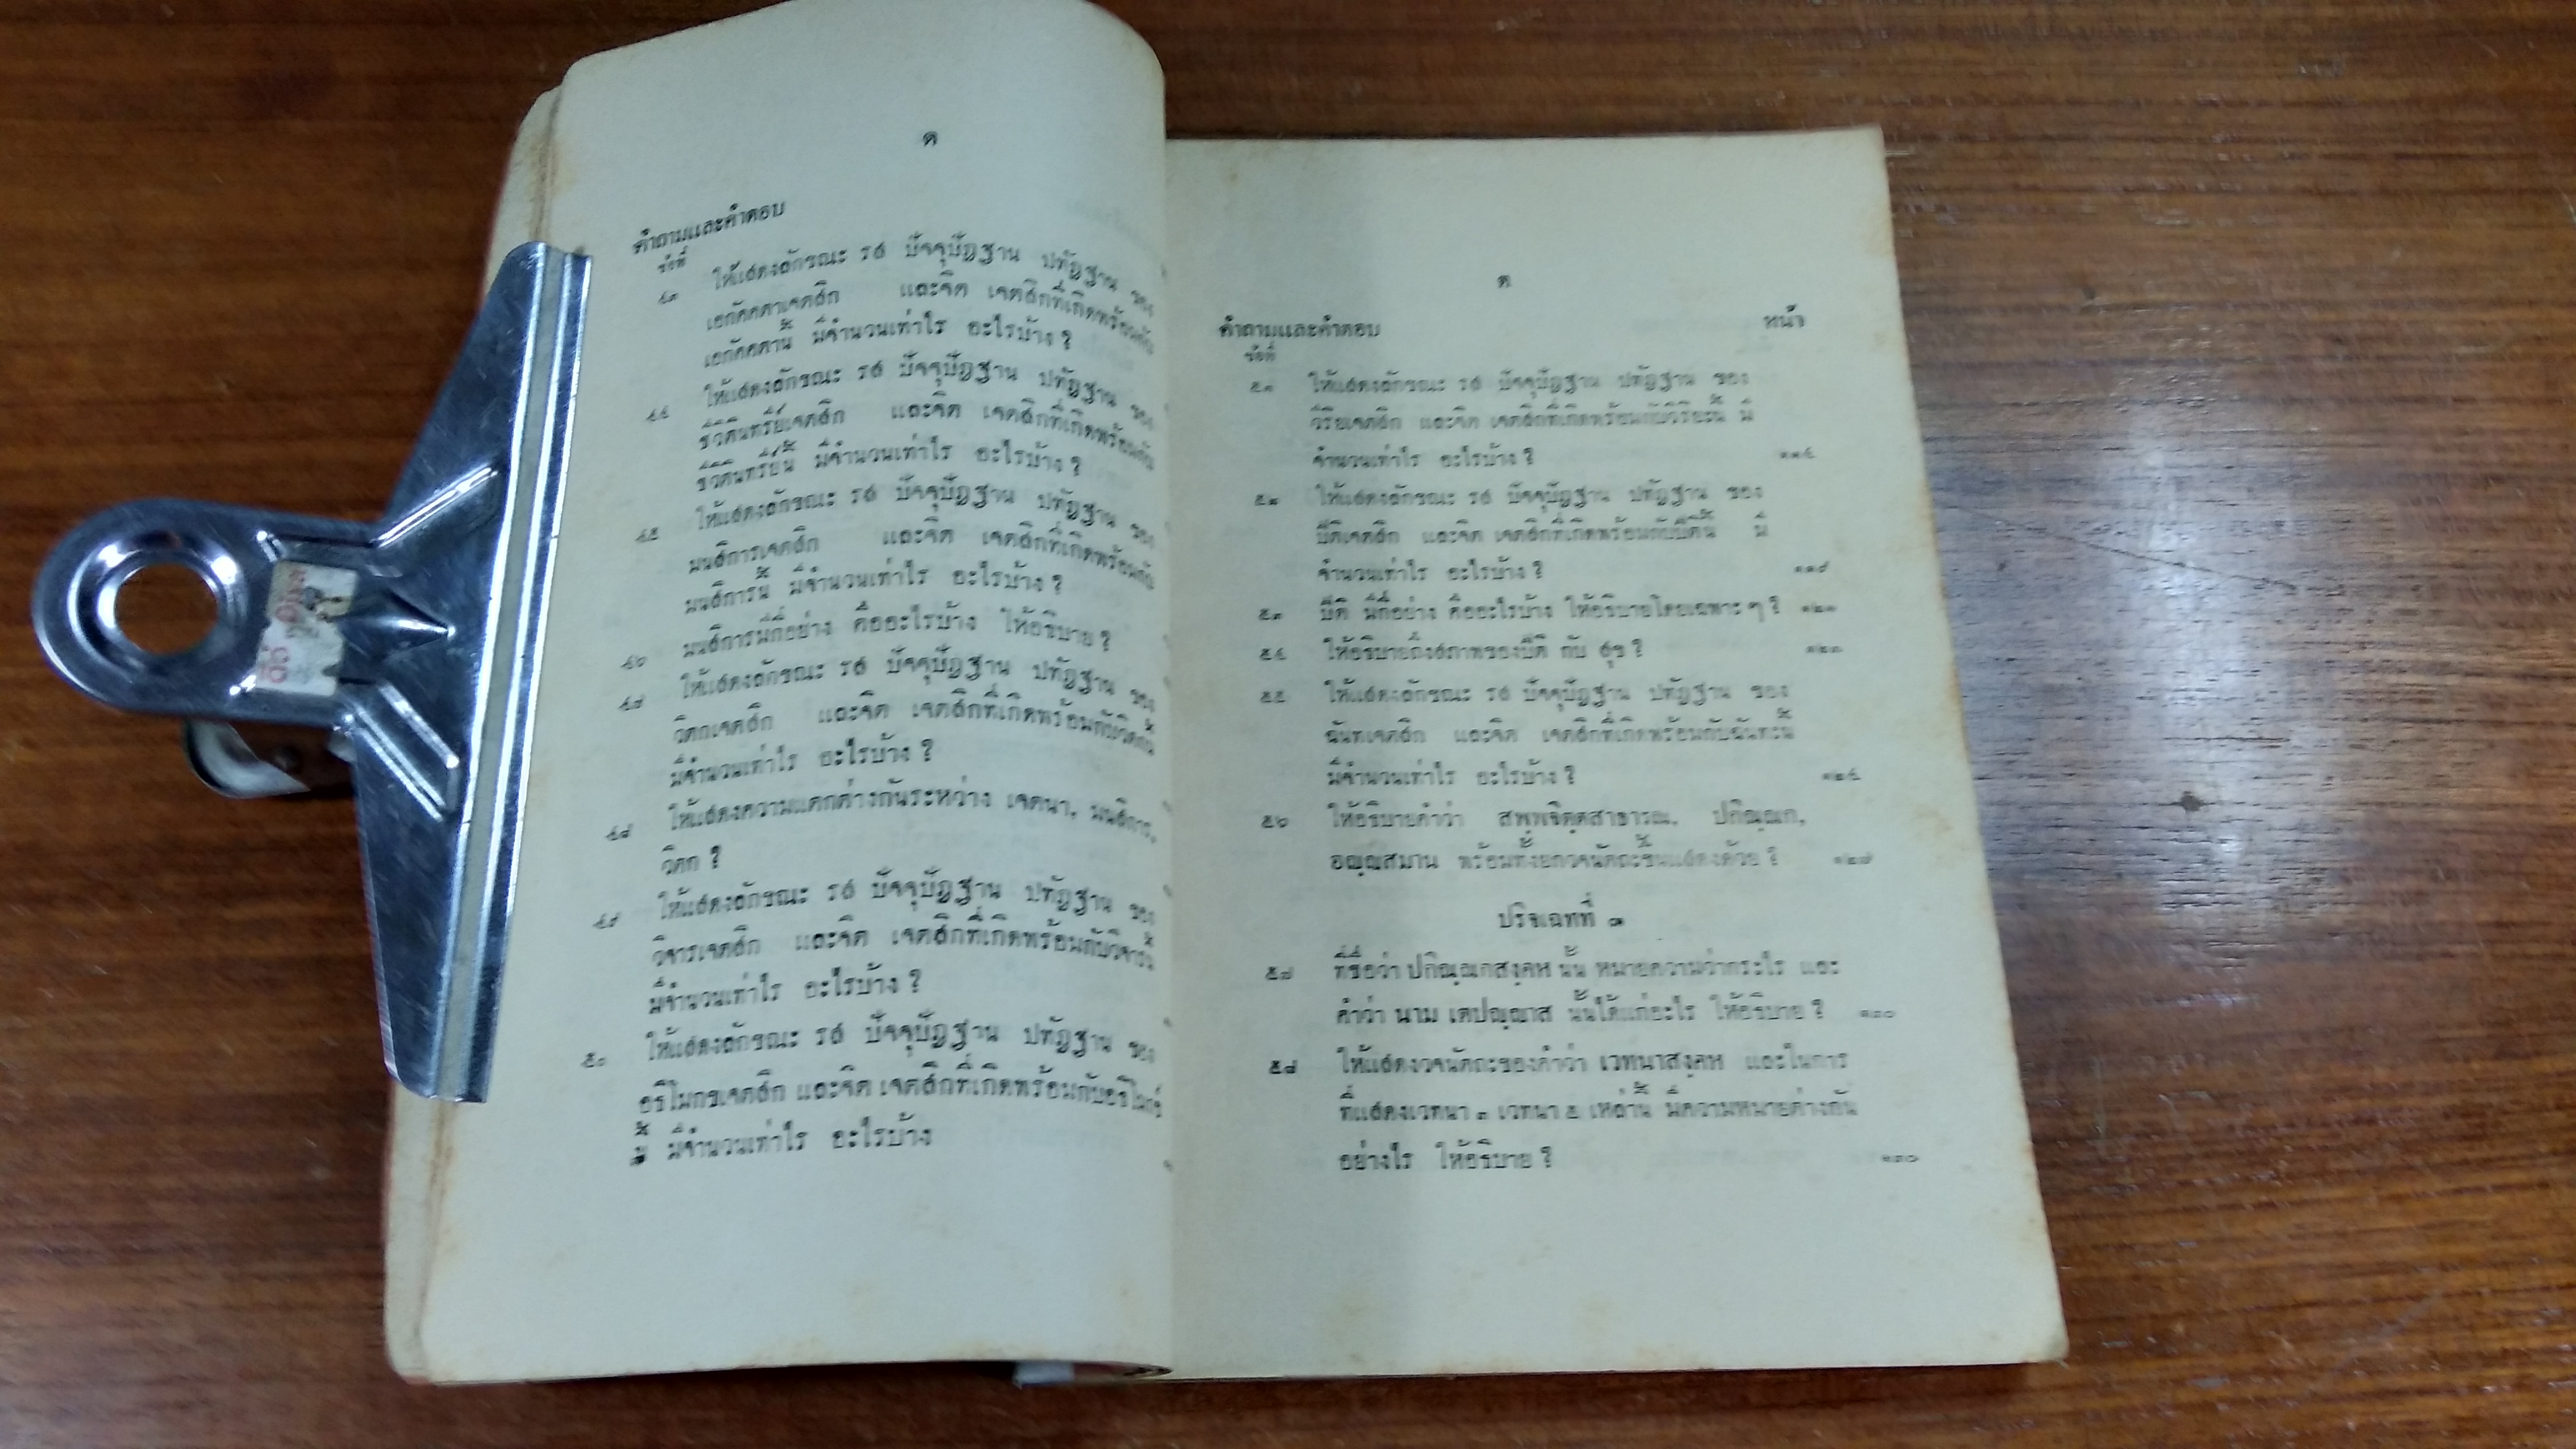 ค
คำถามและคำตอบ
ข้อที่
๔๓ ให้แสดงลักขณะ รส ปัจจุปัฏฐาน ปทัฏฐาน ของ
เอกัคคตาเจตสิก และจิต เจตสิกที่เกิดพร้อมกับ
เอกัคคตานี้ มีจำนวนเท่าไร อะไรบ้าง ?
๔๔ ให้แสดงลักขณะ รส ปัจจุปัฏฐาน ปทัฏฐาน ของ
ชีวิตินทรีย์เจตสิก และจิต เจตสิกที่เกิดพร้อมกับ
ชีวิตินทรีย์นี้ มีจำนวนเท่าไร อะไรบ้าง ?
๔๕ ให้แสดงลักขณะ รส ปัจจุปัฏฐาน ปทัฏฐาน ของ
มนสิการเจตสิก และจิต เจตสิกที่เกิดพร้อมกับ
มนสิการนี้ มีจำนวนเท่าไร อะไรบ้าง ?
๔๖ มนสิการมีกี่อย่าง คืออะไรบ้าง ให้อธิบาย ?
๔๗ ให้แสดงลักขณะ รส ปัจจุปัฏฐาน ปทัฏฐาน ของ
วิตกเจตสิก และจิต เจตสิกที่เกิดพร้อมกับวิตกนี้
มีจำนวนเท่าไร อะไรบ้าง ?
๔๘ ให้แสดงความแตกต่างกันระหว่าง เจตนา, มนสิการ,
วิตก ?
๔๙ ให้แสดงลักขณะ รส ปัจจุปัฏฐาน ปทัฏฐาน ของ
วิจารเจตสิก และจิต เจตสิกที่เกิดพร้อมกับวิจารนี้
มีจำนวนเท่าไร อะไรบ้าง ?
๕๐ ให้แสดงลักขณะ รส ปัจจุปัฏฐาน ปทัฏฐาน ของ
อธิโมกขเจตสิก และจิต เจตสิกที่เกิดพร้อมกับอธิโมกข์
นี้ มีจำนวนเท่าไร อะไรบ้าง
ต
คำถามและคำตอบ หน้า
ข้อที่
๕๑ ให้แสดงลักขณะ รส ปัจจุปัฏฐาน ปทัฏฐาน ของ
วิริยเจตสิก และจิต เจตสิกที่เกิดพร้อมกับวิริยะนี้ มี
จำนวนเท่าไร อะไรบ้าง ?
๕๒ ให้แสดงลักขณะ รส ปัจจุปัฏฐาน ปทัฏฐาน ของ
ปีติเจตสิก และจิต เจตสิกที่เกิดพร้อมกับปีตินี้ มี
จำนวนเท่าไร อะไรบ้าง ?
๕๓ ปีติ มีกี่อย่าง คืออะไรบ้าง ให้อธิบายโดยเฉพาะ ๆ ?
๕๔ ให้อธิบายถึงสภาพของปีติ กับ สุข ?
๕๕ ให้แสดงลักขณะ รส ปัจจุปัฏฐาน ปทัฏฐาน ของ
ฉันทเจตสิก และจิต เจตสิกที่เกิดพร้อมกับฉันทะนี้
มีจำนวนเท่าไร อะไรบ้าง ?
๕๖ ให้อธิบายคำว่า สพฺพจิตฺตสาธารณ, ปกิณฺณก,
อญฺญสมาน พร้อมทั้งยกวจนัตถะขึ้นแสดงด้วย ? ๑๒๗
ปริจเฉทที่ ๓
๕๗ ที่ชื่อว่า ปกิณฺณกสงฺคห นั้น หมายความว่ากระไร และ
คำว่า นาม เตปญฺญาส นั้นได้แก่อะไร ให้อธิบาย ? ๑๓๐
๕๘ ให้แสดงวจนัตถะของคำว่า เวทนาสงฺคห และในการ
ที่แสดงเวทนา ๓ เวทนา ๕ เหล่านี้ มีความหมายต่างกัน
อย่างไร ให้อธิบาย ? ๑๓๐